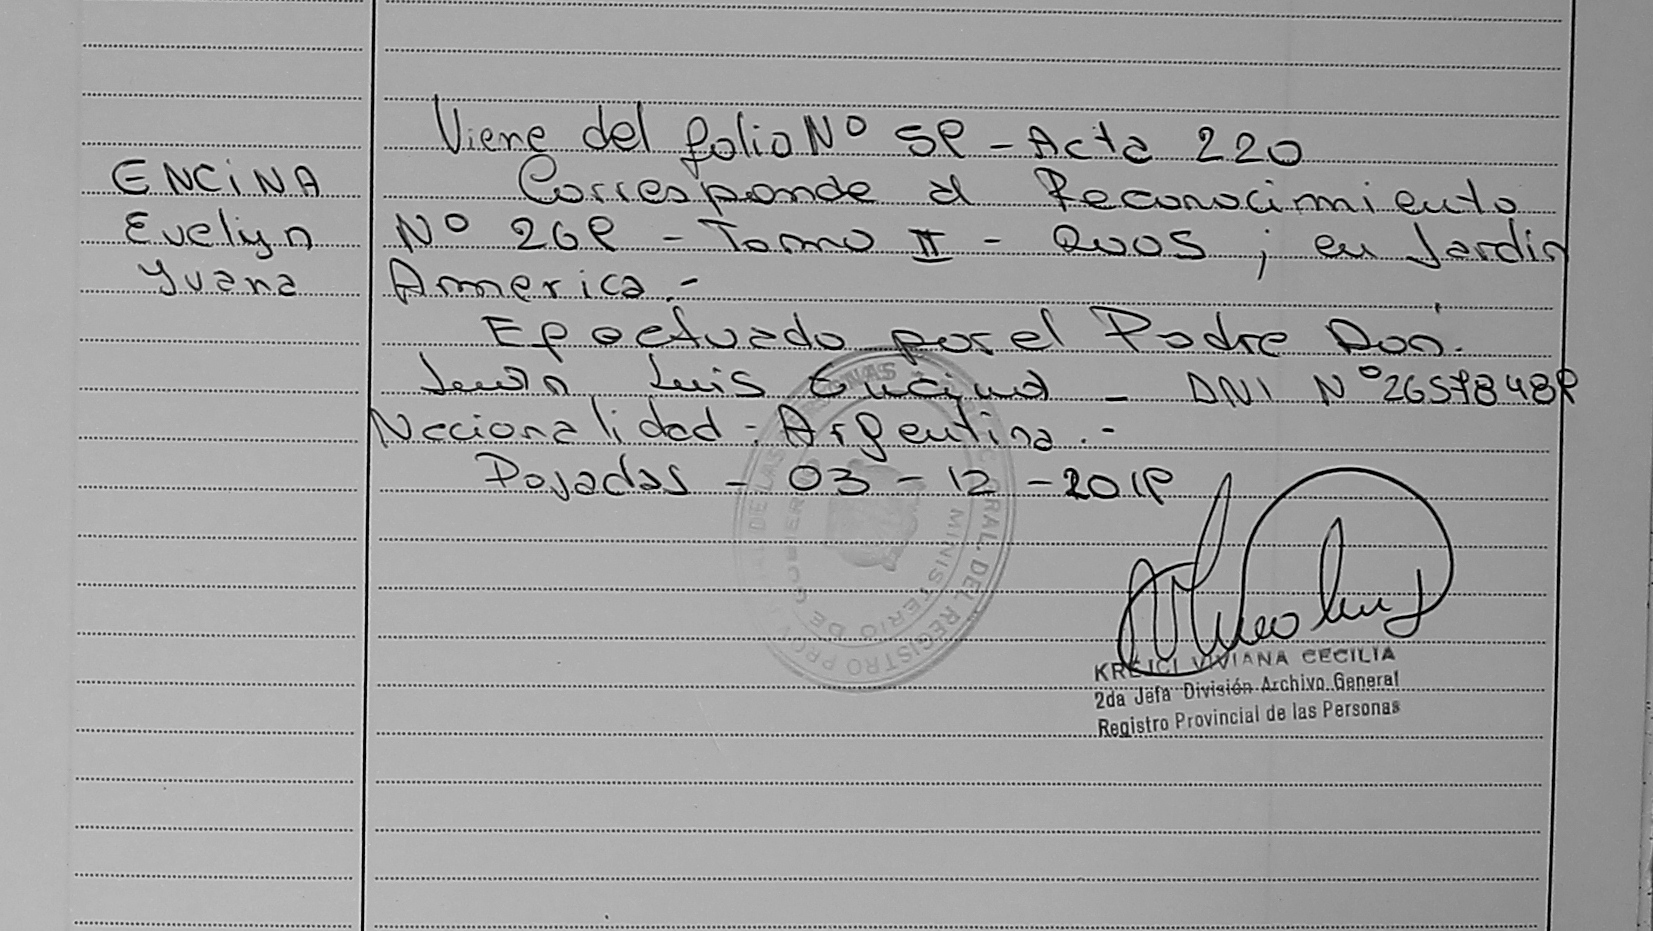 Viene del folio Nº 59 - Acta 220
ENCINA
Corresponde al Reconocimiento
Evelyn
Nº 269 - Tomo II - 2005 ; en Jardin
Yvana
America.-
Efectuado por el Padre Don.
Juan Luis Encina - DNI Nº 26578489
Nacionalidad - Argentina.-
Posadas - 03 - 12 - 2019
KREJCI VIVIANA CECILIA
2da Jefa División Archivo General
Registro Provincial de las Personas
GRAL. DEL REGISTRO PROV. DE LAS PERSONAS
MINISTERIO DE GOBIERNO